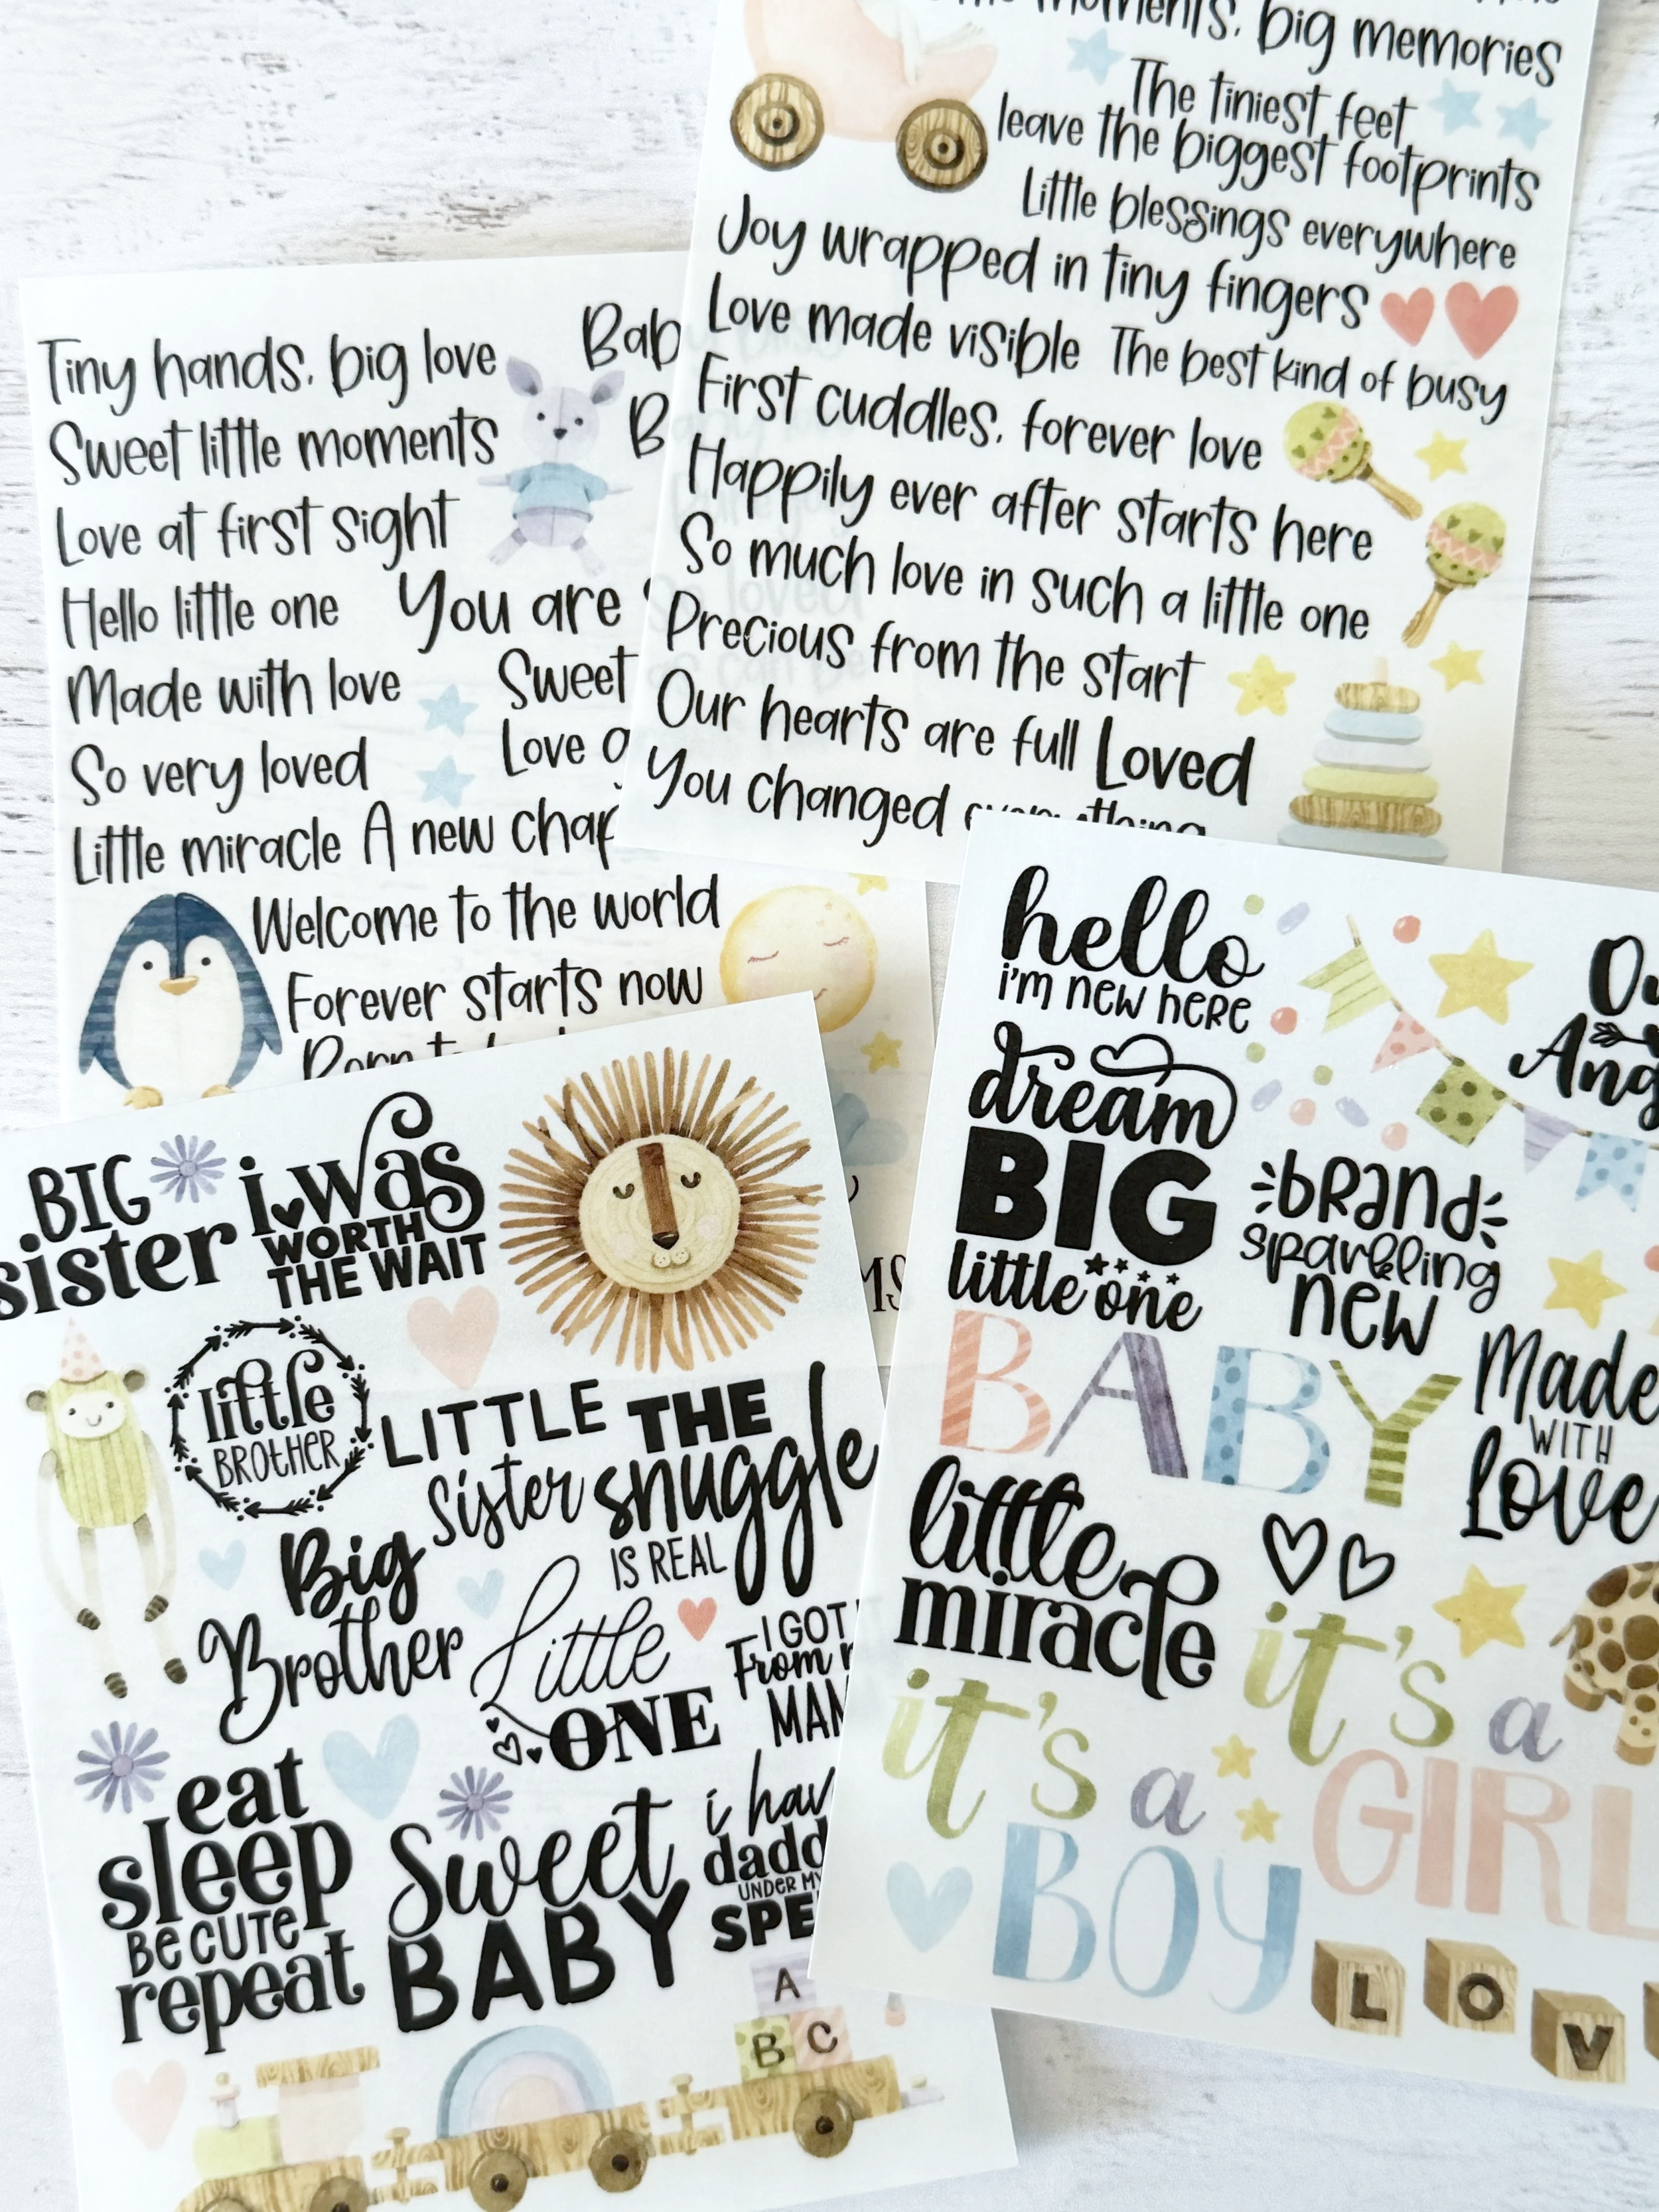 moments, big memories
The tiniest feet
leave the biggest footprints
Little blessings everywhere
Joy wrapped in tiny fingers
Love made visible The best kind of busy
First cuddles, forever love
Happily ever after starts here
So much love in such a little one
Precious from the start
Our hearts are full Loved
You changed everything
Tiny hands, big love
Sweet little moments
Love at first sight
Hello little one You are
Made with love Sweet
So very loved Love
Little miracle A new
Welcome to the world
Forever starts now
BIG
sister
i was
WORTH
THE WAIT
little
BROTHER
LITTLE
sister
THE
snuggle
IS REAL
Big
Brother
Little
ONE
I GOT
From
eat
sleep
BE CUTE
repeat
Sweet
BABY
i
UNDER
A
B C
hello
i'm new here
dream
BIG
little one
brand
sparkling
new
BABY
Made
WITH
Love
little
miracle
it's a
GIRL
it's a
BOY
L O V